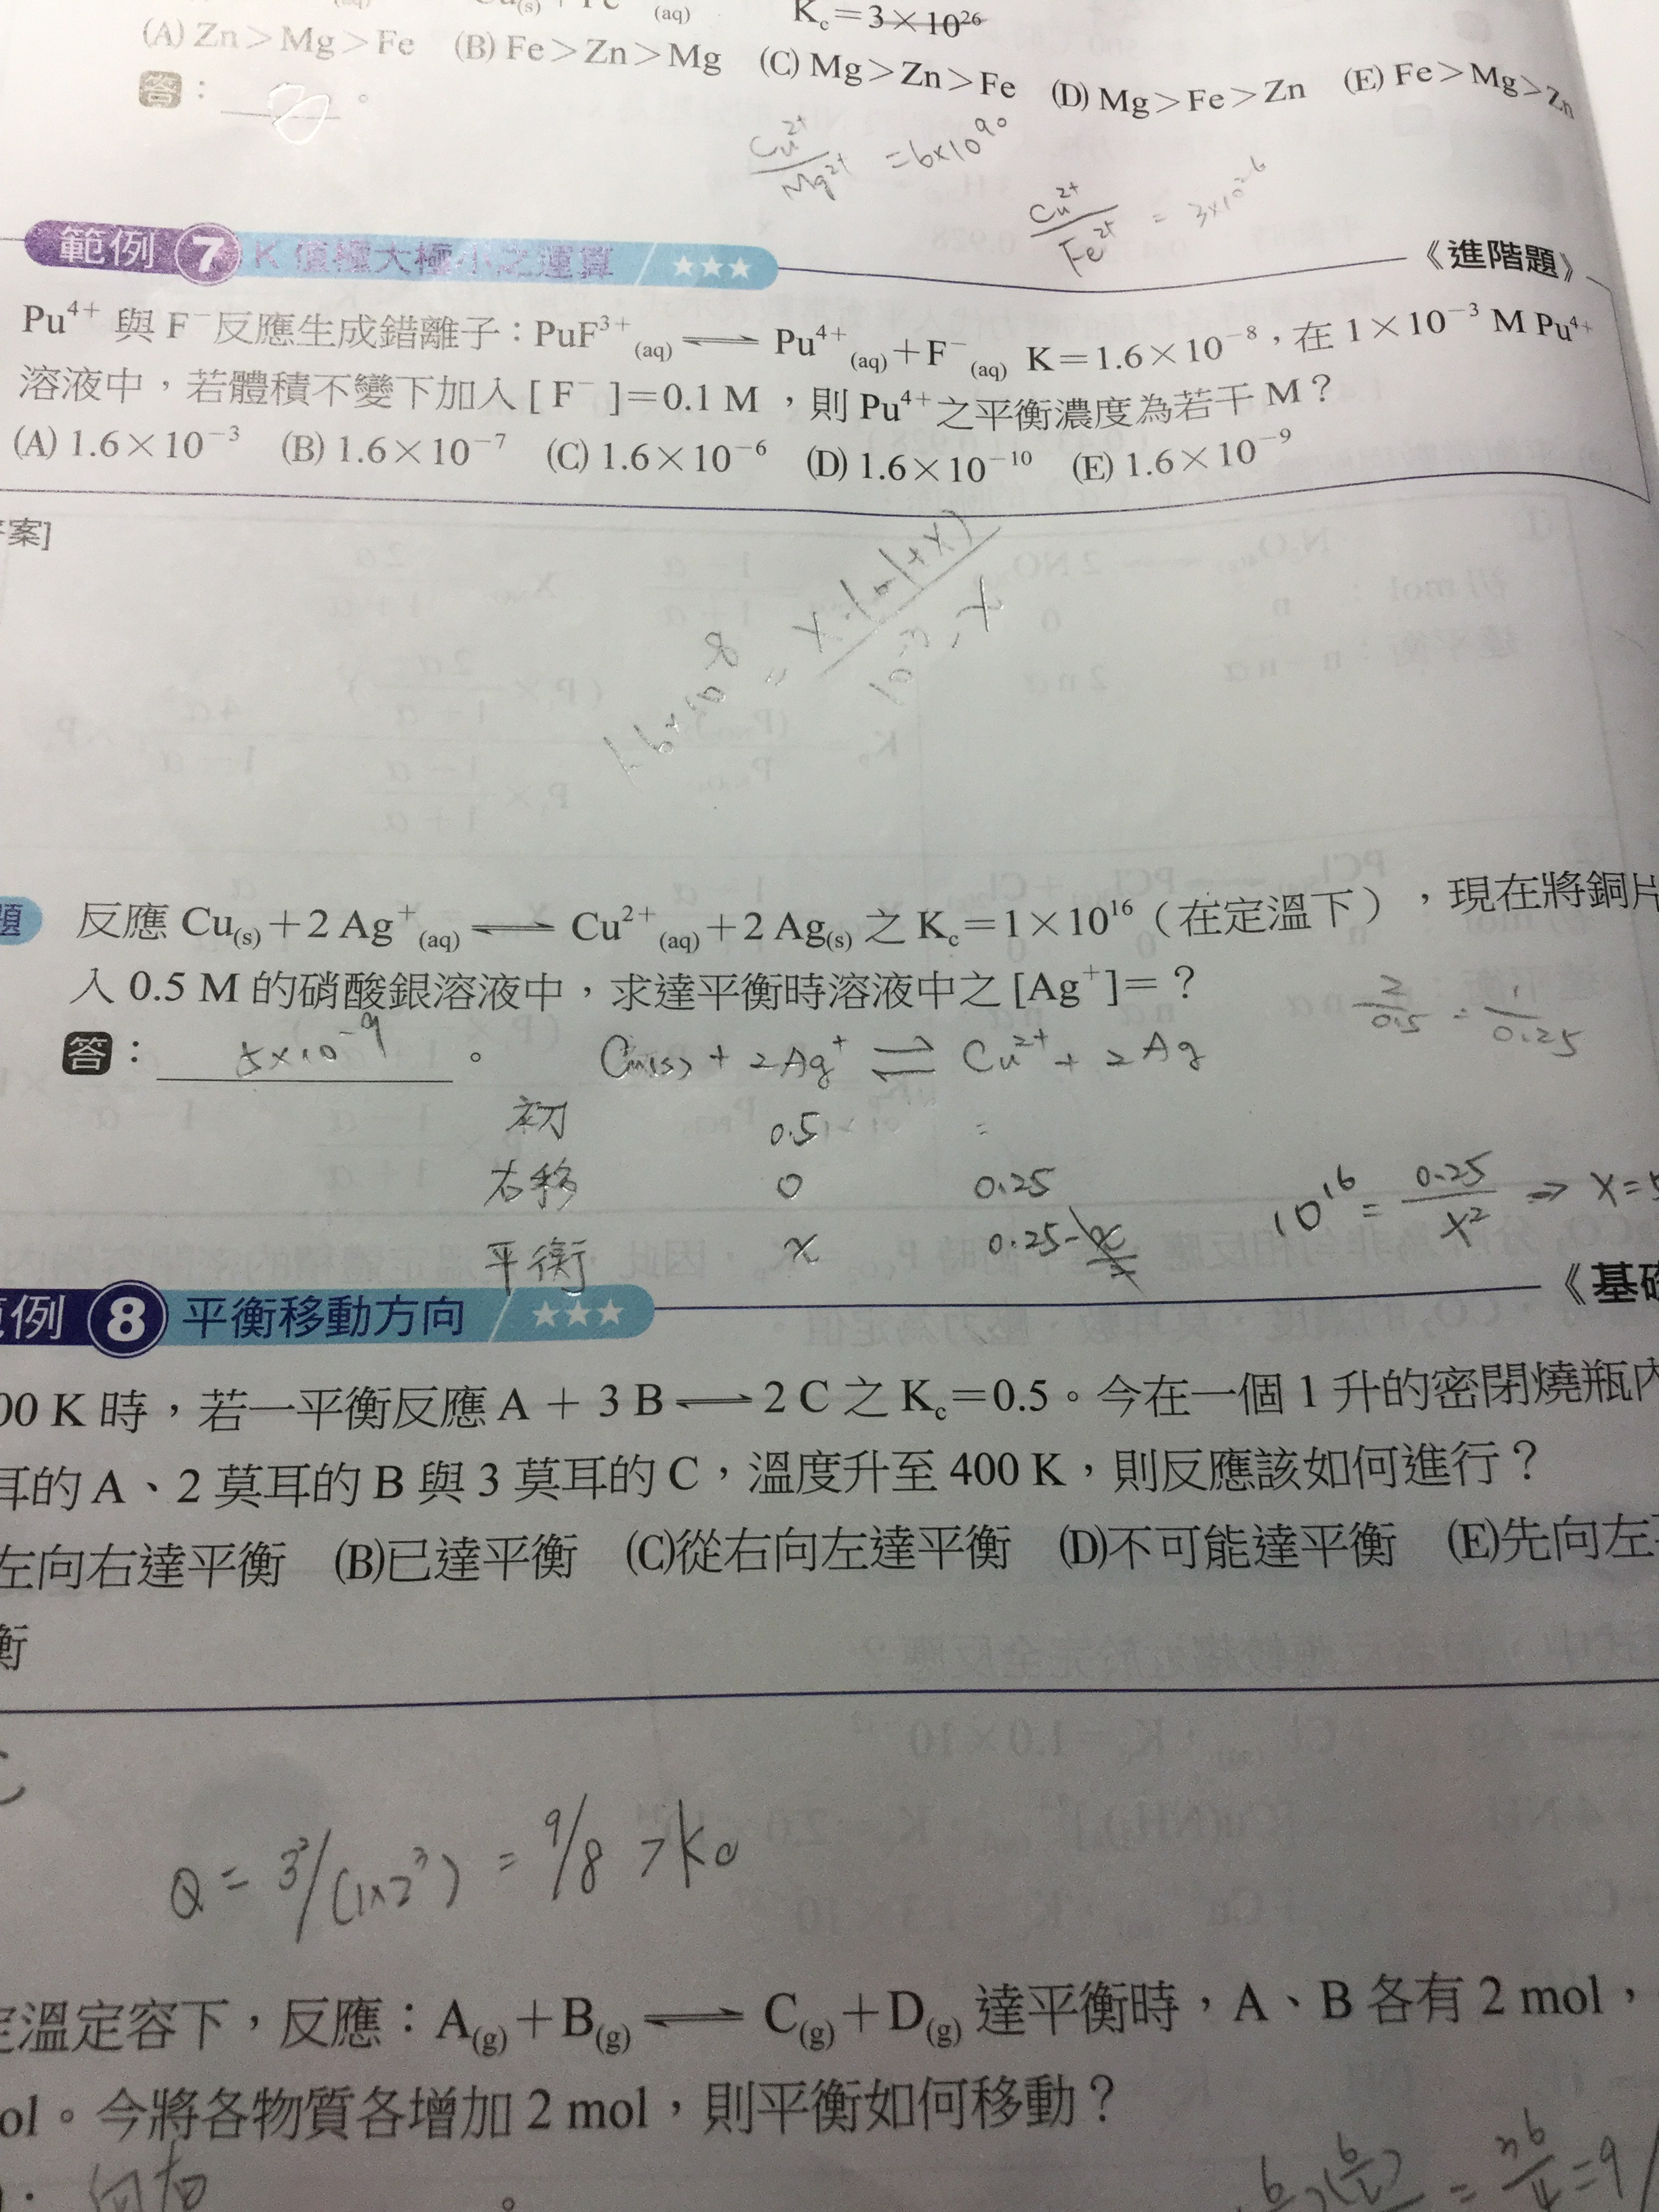 Kc=3×10²⁶
(A) Zn>Mg>Fe (B) Fe>Zn>Mg (C) Mg>Zn>Fe (D) Mg>Fe>Zn (E) Fe>Mg>Zn
答:
Cu²⁺/Mg²⁺ =6×10⁹⁰
Cu²⁺/Fe²⁺ = 3×10²⁶
範例 7 K 值極大極小之運算 ★★★ 《進階題》
Pu⁴⁺ 與 F⁻ 反應生成錯離子:PuF³⁺(aq) ⇌ Pu⁴⁺(aq)+F⁻(aq) K=1.6×10⁻⁸,在 1×10⁻³ M Pu⁴⁺
溶液中,若體積不變下加入 [F⁻]=0.1 M,則 Pu⁴⁺ 之平衡濃度為若干 M?
(A) 1.6×10⁻³ (B) 1.6×10⁻⁷ (C) 1.6×10⁻⁶ (D) 1.6×10⁻¹⁰ (E) 1.6×10⁻⁹
案]
1.6×10⁻⁸ = x·(0.1+x)/10⁻³-x
題 反應 Cu(s)+2 Ag⁺(aq) ⇌ Cu²⁺(aq)+2 Ag(s) 之 Kc=1×10¹⁶(在定溫下),現在將銅片
入 0.5 M 的硝酸銀溶液中,求達平衡時溶液中之 [Ag⁺]=?
2/0.5 = 1/0.25
答: 5×10⁻⁹ 。 Cu(s) + 2Ag⁺ ⇌ Cu²⁺ + 2Ag
初 0.5
右移 0 0.25
平衡 x 0.25-
10¹⁶ = 0.25/x² ⇒ x=5
範例 8 平衡移動方向 ★★★ 《基礎
00 K 時,若一平衡反應 A + 3 B ⇌ 2 C 之 Kc=0.5。今在一個 1 升的密閉燒瓶內
耳的 A、2 莫耳的 B 與 3 莫耳的 C,溫度升至 400 K,則反應該如何進行?
左向右達平衡 (B)已達平衡 (C)從右向左達平衡 (D)不可能達平衡 (E)先向左
衡
C
Q = 3²/(1×2³) = 9/8 >Kc
定溫定容下,反應:A(g)+B(g) ⇌ C(g)+D(g) 達平衡時,A、B 各有 2 mol,
ol。今將各物質各增加 2 mol,則平衡如何移動?
: 向右 。